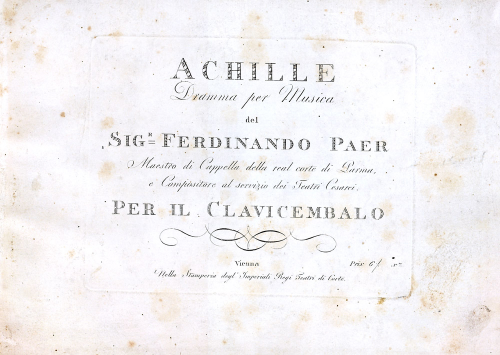 ACHILLE
Dramma per Musica
del
SIG.R FERDINANDO PAER
Maestro di Cappella della real corte di Parma,
e Compositore al servizio dei Teatri Cesarei.
PER IL CLAVICEMBALO
Vienna
Prix 6f
Nella Stamperia degl' Imperiali Regi Teatri di Corte.